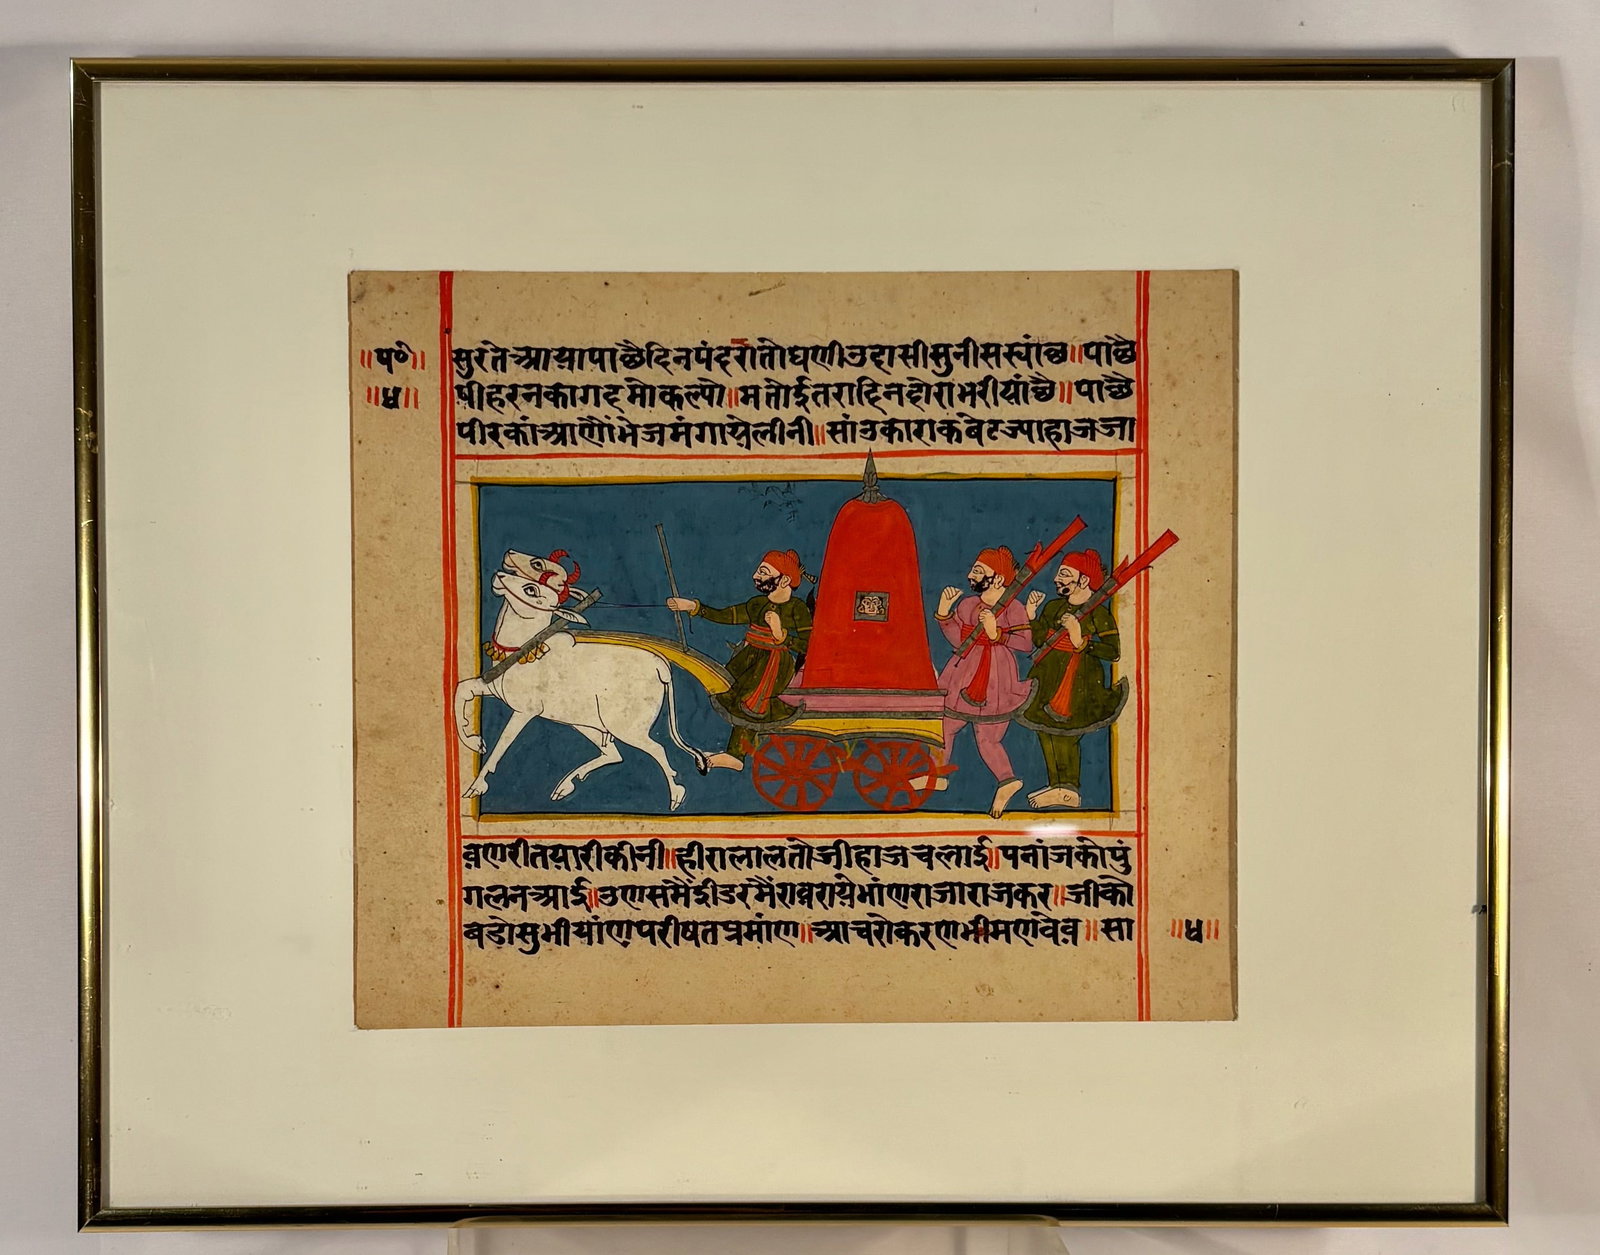 ॥प॰॥ सुरतेआयापाछैदिनपंदरातोघणीउदासीसुनीसस्यांछ॥पाछै
॥ध॥ षीहरनकागदमोकल्यो॥मतोईतराहिनहोराभरीयांछै॥पाछै
पीरकांआणैंभेजमंगायेलीनी॥सांउकाराकबेटज्याहाजजा
वणरीतयारीकीनी॥हीरालालतोजीहाजचलाई॥पनांजकोपुं
गलनआई॥उणसंमैंईीडरमैंरावरायेभांणराजाराजकर॥जीको
बडोसुभीयांणपरीषतप्रमांण॥आचरोकरणभीमणंवेव॥सा ॥ध॥